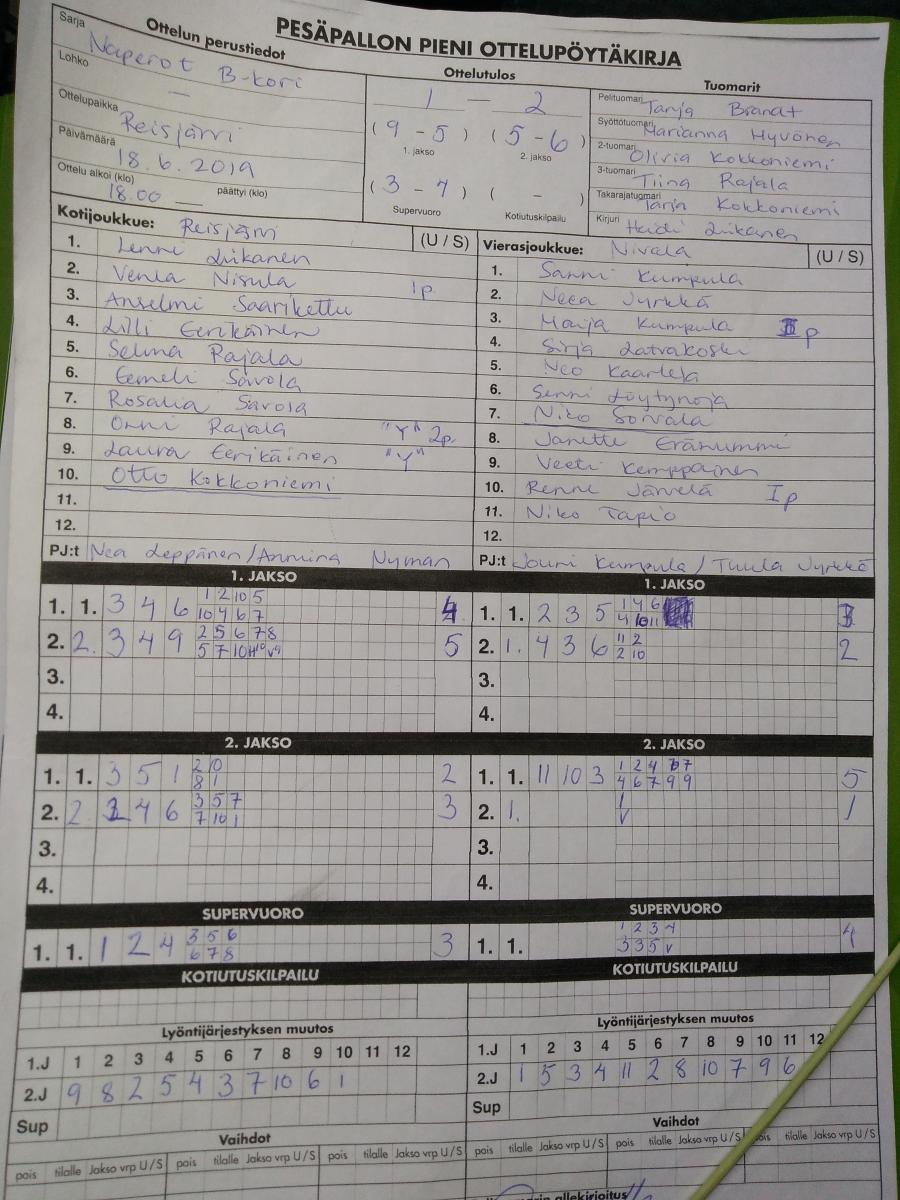 PESÄPALLON PIENI OTTELUPÖYTÄKIRJA
Ottelun perustiedot
Sarja Naperot B-kori
Lohko —
Ottelupaikka Reisjärvi
Päivämäärä 18.6.2019
Ottelu alkoi (klo) 18.00 päättyi (klo) —
Ottelutulos
1 — 2
(9 - 5) (5 - 6)
1. jakso 2. jakso
(3 - 4) ( - )
Supervuoro Kotiutuskilpailu
Tuomarit
Pelituomari Tanja Brandt
Syöttötuomari Marianna Hyvönen
2-tuomari Olivia Kokkoniemi
3-tuomari Tiina Rajala
Takarajatuomari Tarja Kokkoniemi
Kirjuri Heidi Liikanen
Kotijoukkue: Reisjärvi (U / S)
1. Lenni Liikanen
2. Venla Nisula 1p
3. Anselmi Saarikettu
4. Lilli Eerikäinen
5. Selma Rajala
6. Eemeli Savola
7. Rosalia Savola
8. Onni Rajala "Y" 2p.
9. Laura Eerikäinen "Y"
10. Otto Kokkoniemi
11.
12.
PJ:t Nea Leppänen/Anniina Nyman
Vierasjoukkue: Nivala (U / S)
1. Sanni Kumpula
2. Neea Jyrkkä
3. Maija Kumpula II p
4. Sirja Latvakoski
5. Neo Kaarlela
6. Senni Löytynoja
7. Niko Sorvala
8. Janette Eränummi
9. Veeti Kemppainen
10. Renne Järvelä I p
11. Niko Tapio
12.
PJ:t Jouni Kumpula / Tuula Jyrkkä
1. JAKSO
1. 1. 3 4 6 1 2 10 5 4
10 4 6 7
2. 2. 3 4 9 2 5 6 7 8 5
5 7 10
3.
4.
1. JAKSO
1. 1. 2 3 5 1 4 6 3
4 10 11
2. 1. 4 3 6 11 2 2
2 10
3.
4.
2. JAKSO
1. 1. 3 5 1 2 10 2
8 1
2. 2. 4 6 3 5 7 3
7 10 1
3.
4.
2. JAKSO
1. 1. 11 10 3 1 2 4 7 5
4 6 7 9 9
2. 1. 1 1
V
3.
4.
SUPERVUORO
1. 1. 1 2 4 3 5 6 3
6 7 8
SUPERVUORO
1. 1. 1 2 3 4 4
3 3 5 V
KOTIUTUSKILPAILU
KOTIUTUSKILPAILU
Lyöntijärjestyksen muutos
1.J 1 2 3 4 5 6 7 8 9 10 11 12
2.J 9 8 2 5 4 3 7 10 6 1
Sup
Lyöntijärjestyksen muutos
1.J 1 2 3 4 5 6 7 8 9 10 11 12
2.J 1 5 3 4 11 2 8 10 7 9 6
Sup
Vaihdot
pois tilalle Jakso vrp U / S pois tilalle Jakso vrp U / S pois tilalle Jakso vrp U / S
Vaihdot
pois tilalle Jakso vrp U / S pois tilalle Jakso vrp U / S pois tilalle Jakso vrp U / S
allekirjoitus